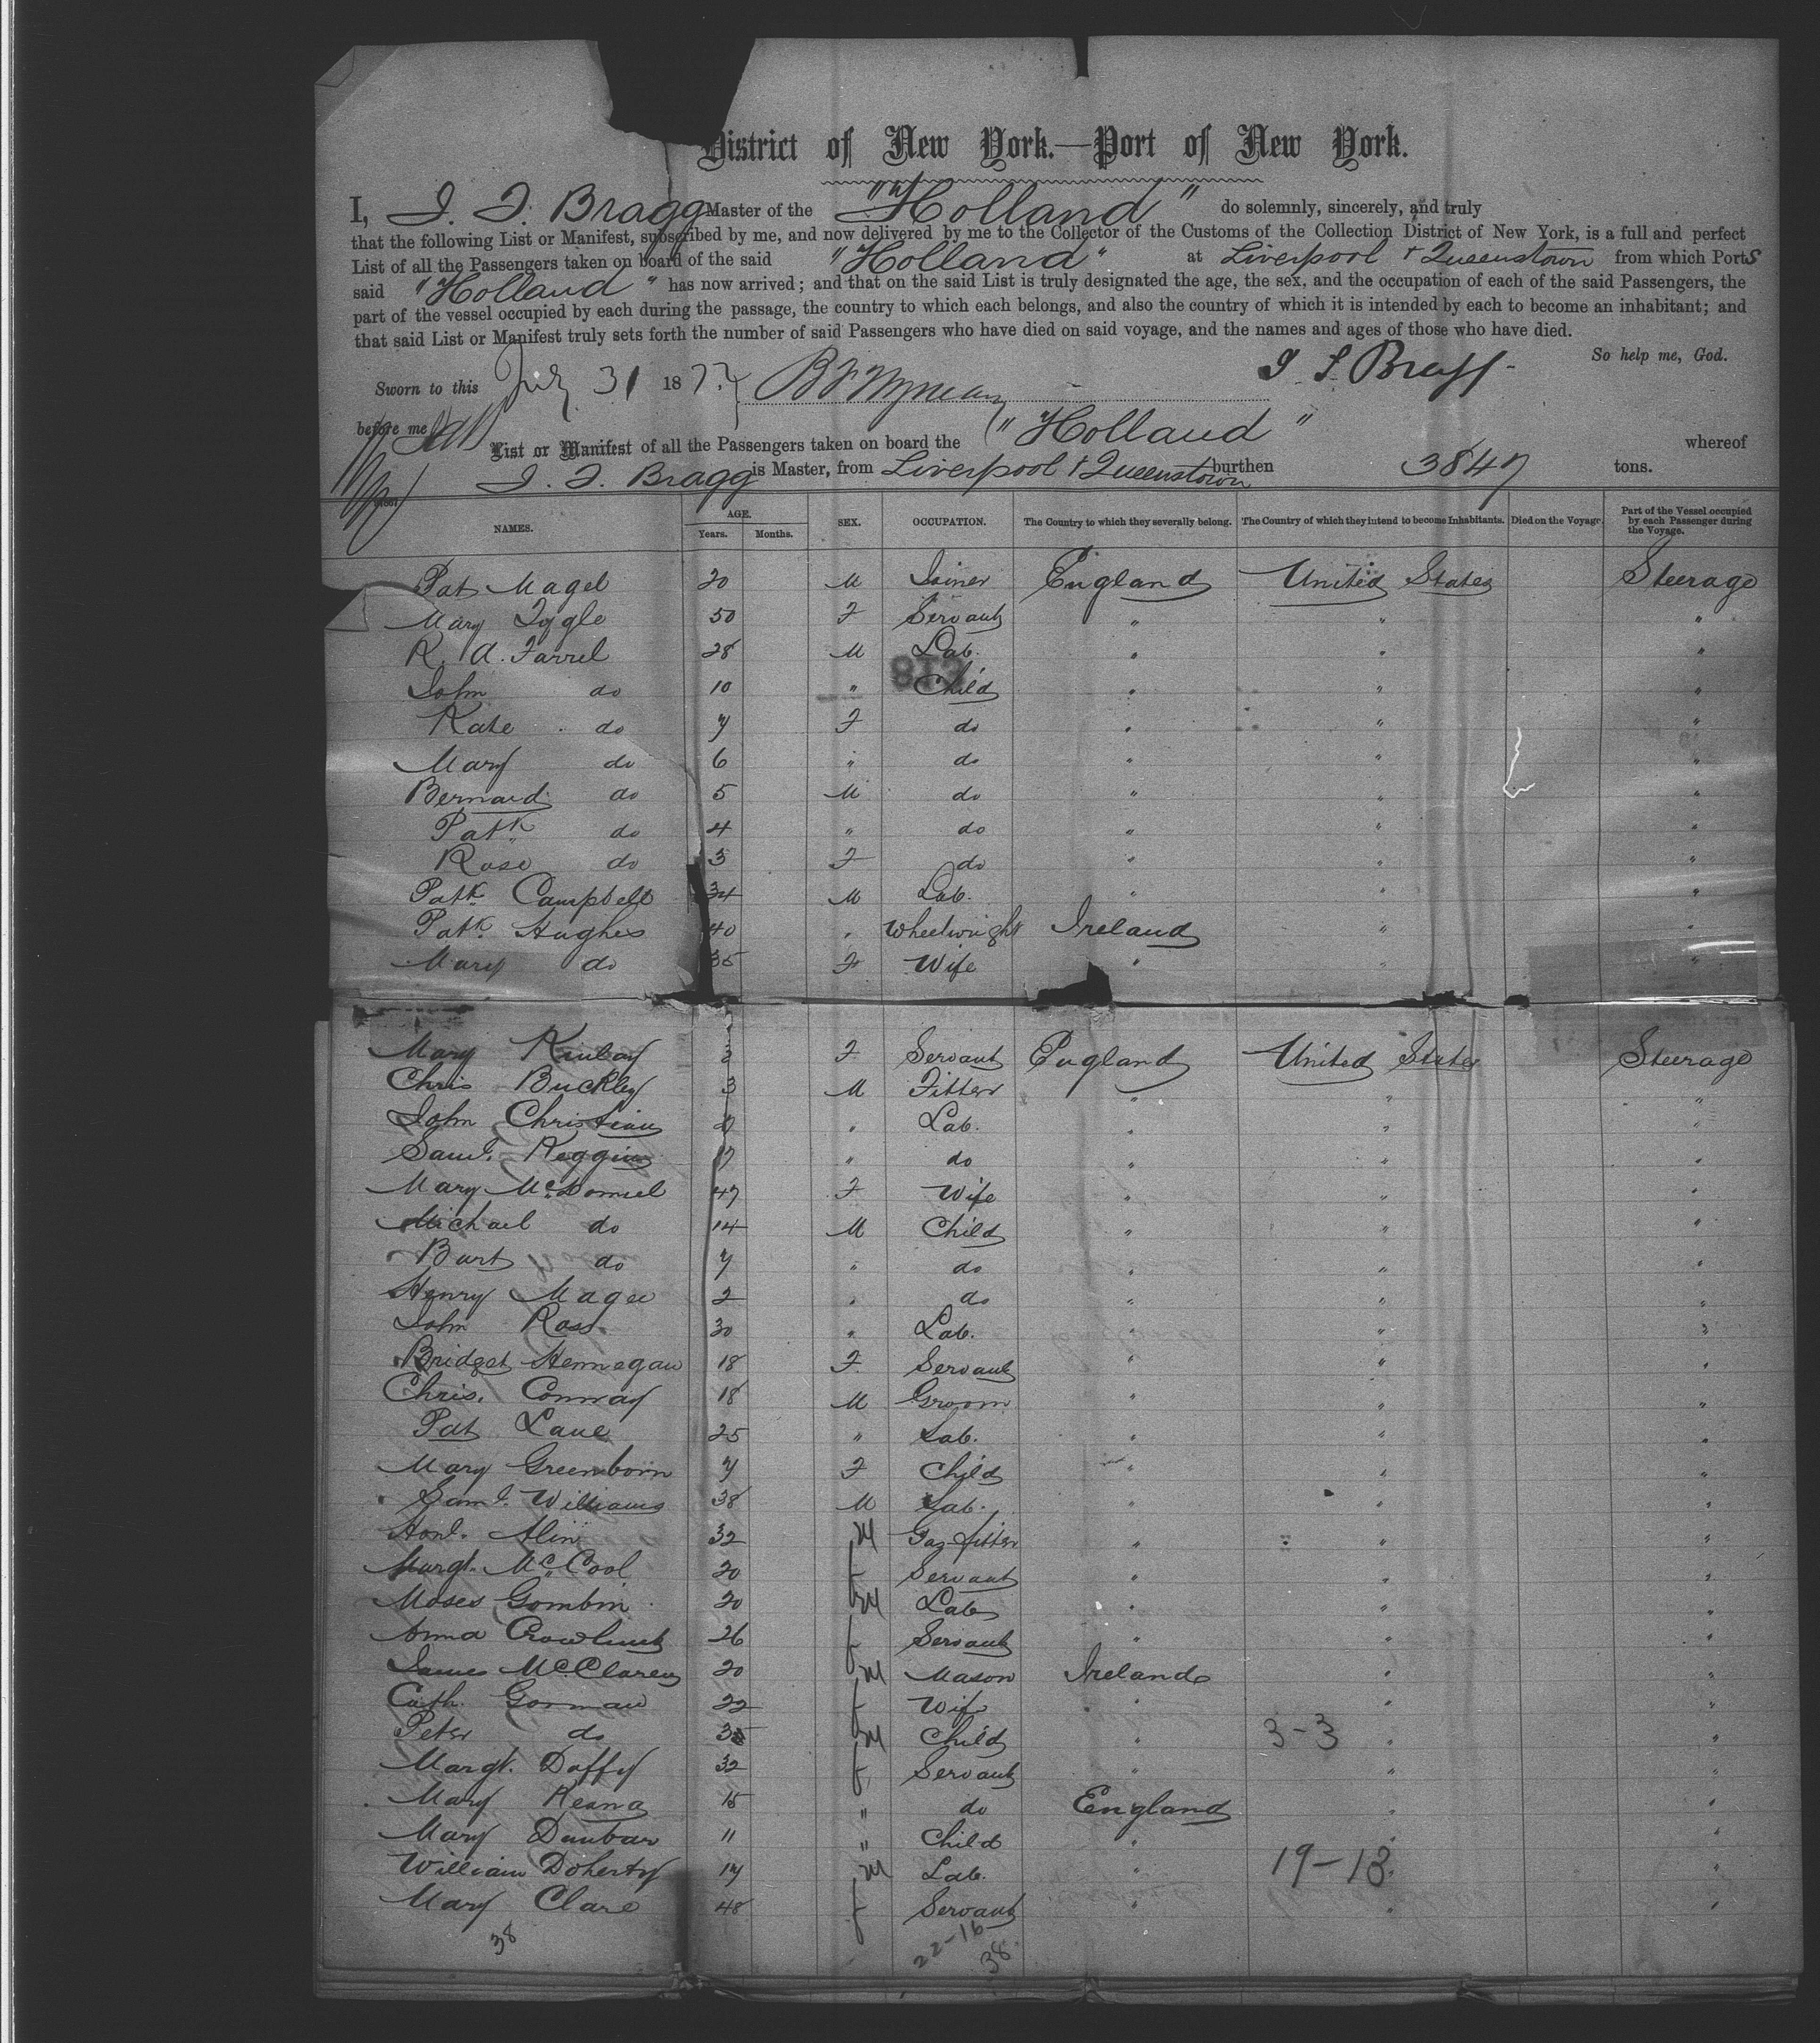 District of New York.—Port of New York.
I, J. F. Bragg Master of the "Holland" do solemnly, sincerely, and truly
that the following List or Manifest, subscribed by me, and now delivered by me to the Collector of the Customs of the Collection District of New York, is a full and perfect
List of all the Passengers taken on board of the said "Holland" at Liverpool + Queenstown from which Ports
said "Holland" has now arrived; and that on the said List is truly designated the age, the sex, and the occupation of each of the said Passengers, the
part of the vessel occupied by each during the passage, the country to which each belongs, and also the country of which it is intended by each to become an inhabitant; and
that said List or Manifest truly sets forth the number of said Passengers who have died on said voyage, and the names and ages of those who have died.
So help me, God.
Sworn to this July 31 187
before me
List or Manifest of all the Passengers taken on board the "Holland" whereof
J. F. Bragg is Master, from Liverpool + Queenstown burthen 3847 tons.
NAMES. AGE. Years. Months. SEX. OCCUPATION. The Country to which they severally belong. The Country of which they intend to become Inhabitants. Died on the Voyage. Part of the Vessel occupied by each Passenger during the Voyage.
Pat Magel 20 M Joiner England United States Steerage
Mary 50 F Servant " " "
R. A. Farrel 28 M Lab. " " "
John do 10 " Child " " "
Kate do 7 F do " " "
Mary do 6 " do " " "
Bernard do 5 M do " " "
Patk do 4 " do " " "
Rose do 3 F do " " "
Patk. Campbell 34 M Lab. " " "
Patk. Hughes 40 " Wheelwright Ireland " "
Mary do 35 F Wife " " "
Mary F Servant England United States Steerage
Chris Buckley M Fitter " " "
John Christian " Lab. " " "
Saml. " do " " "
Mary McDomiel 47 F Wife " " "
Michael do 14 M Child " " "
Burt do 7 " do " " "
Henry Magee 2 " do " " "
John Ross 30 " Lab. " " "
Bridget Hennegan 18 F Servant " " "
Chris. Conway 18 M Groom " " "
Pat Lane 25 " Lab. " " "
Mary Greenborn 7 F Child " " "
Saml. Williams 38 M Lab. " " "
Alin 32 M Gas fitter " " "
Margt. McCool 20 f Servant " " "
Moses Gombin 20 M Lab " " "
Anna 26 f Servant " " "
James McClaren 20 M Mason Ireland " "
Cath. Gorman 22 f Wife " " "
Peter do M Child " 3-3 " "
Margt. Duffy 32 f Servant " " "
Mary Keana 15 " do England " "
Mary Dunbar 11 " Child " " "
William Doherty 17 M Lab. " 19-18 "
Mary Clare 48 f Servant " " "
38 22-16
38